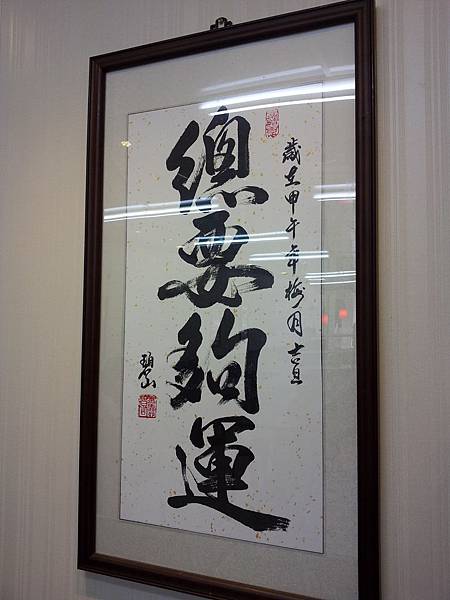 歲在甲午年梅月吉旦
總要夠運
碧山